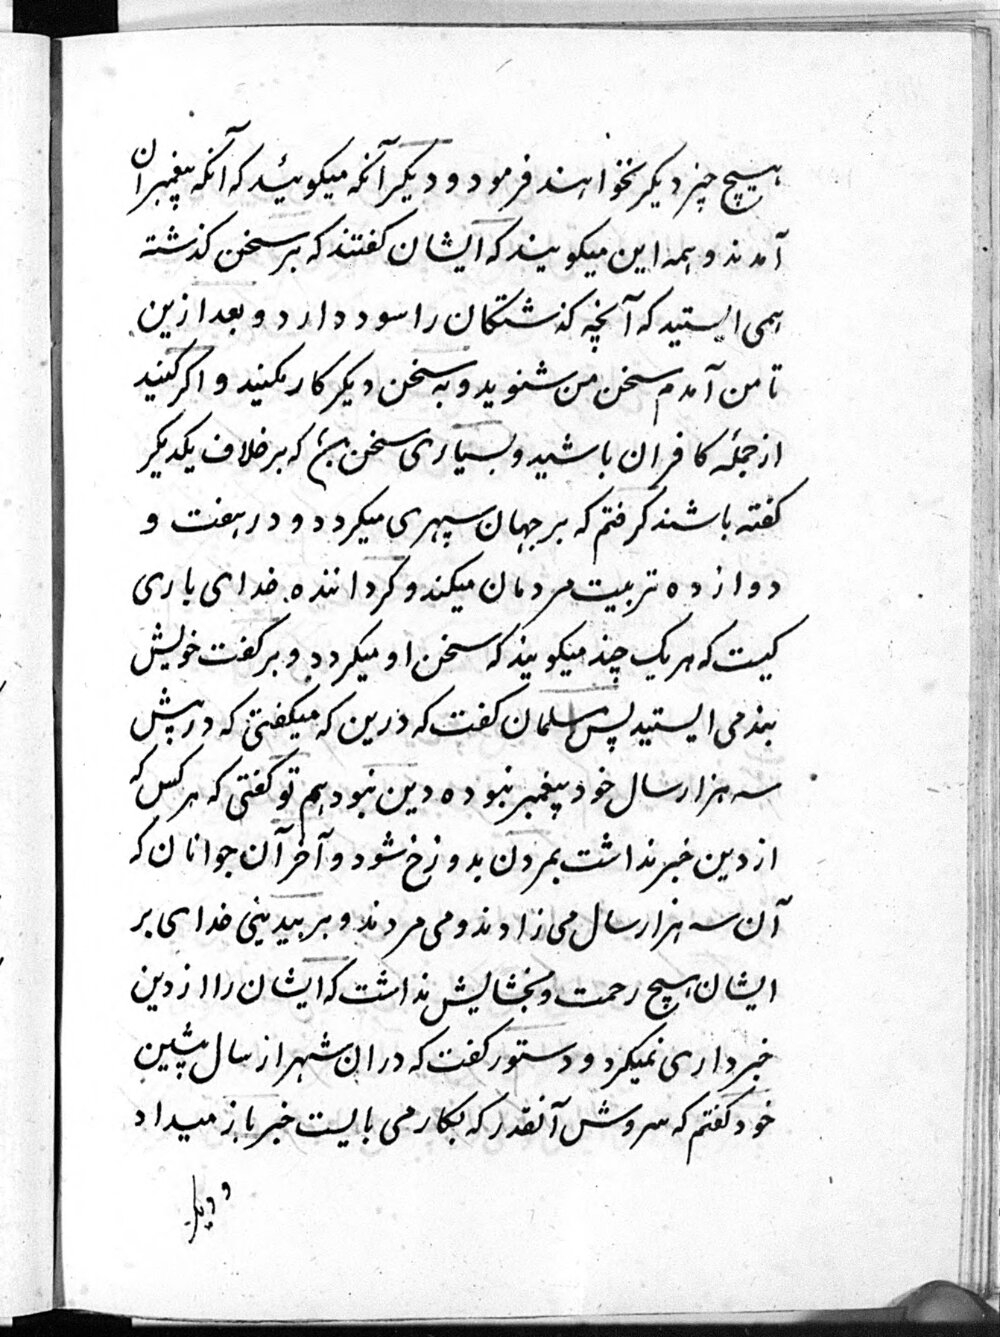 هیچ چیز دیکر نخواهند فرمود و دیکر آنکه میکوئید که آنکه پیغمبران
آمدند و همه این میکویند که ایشان کفتند که بر سخن کذشته
همی ایستید که آنچه کذشتکان را سود دارد و بعد ازین
تا من آمدم سخن من شنوید و به سخن دیکر کار مکنید و اکر کنید
از جمله کافران باشید و بسیاری سخن که بر خلاف یکدیکر
کفته باشند کرفتم که بر جهان سپهری میکردد و در هفت و
دوازده تربیت مردمان میکند و کرداننده خدای باری
کیست که هر یک چند میکویند که سخن او میکردد و بر کفت خویش
بندمی ایستید پس مسلمان کفت که درین که میکفتی که در پیش
سه هزار سال خود پیغمبر نبوده دین نبود هم تو کفتی که هر کس که
از دین خبر نداشت بمردن بدوزخ شود و آخر آن جوانان که
آن سه هزار سال می زادند و می مردند و بر بیدینی خدای بر
ایشان هیچ رحمت و بخشایش نداشت که ایشان را از دین
خبرداری نمیکرد و دستور کفت که در ان شهر از سال پیشین
خود کفتم که سروش آنقدر که بکار می بایست خبر باز میداد